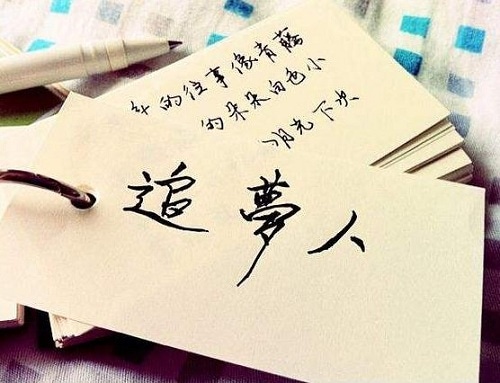 的往事像青藤
的朵朵白色小
月光下
追夢人